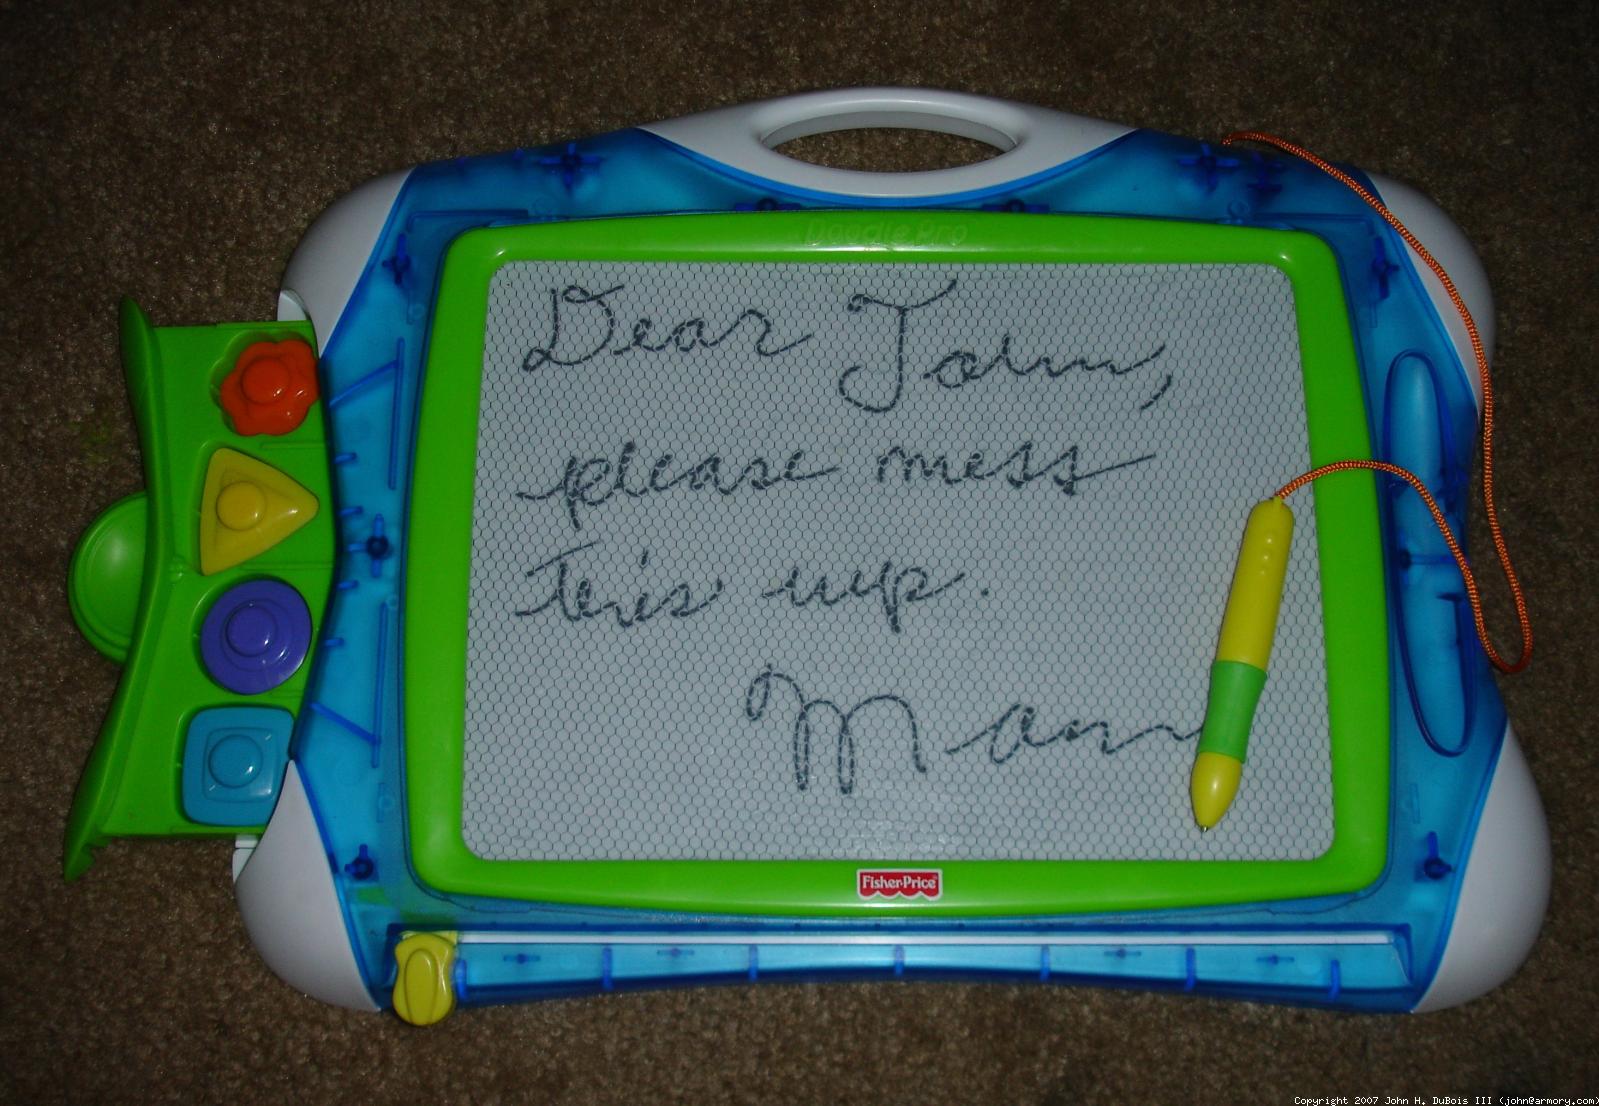 Doodle Pro
Dear John,
please mess
this up.
Mann
Fisher-Price
Copyright 2007 John H. DuBois III (john@armory.com)